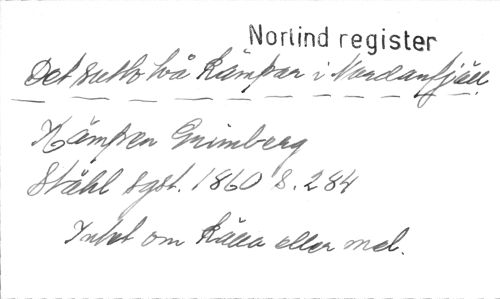 Norlind register
Det sutto två kämpar i Nordanfjäll
Kämpen Grimberg
Ståhl sgst. 1860 S. 284
Intet om källa eller mel.